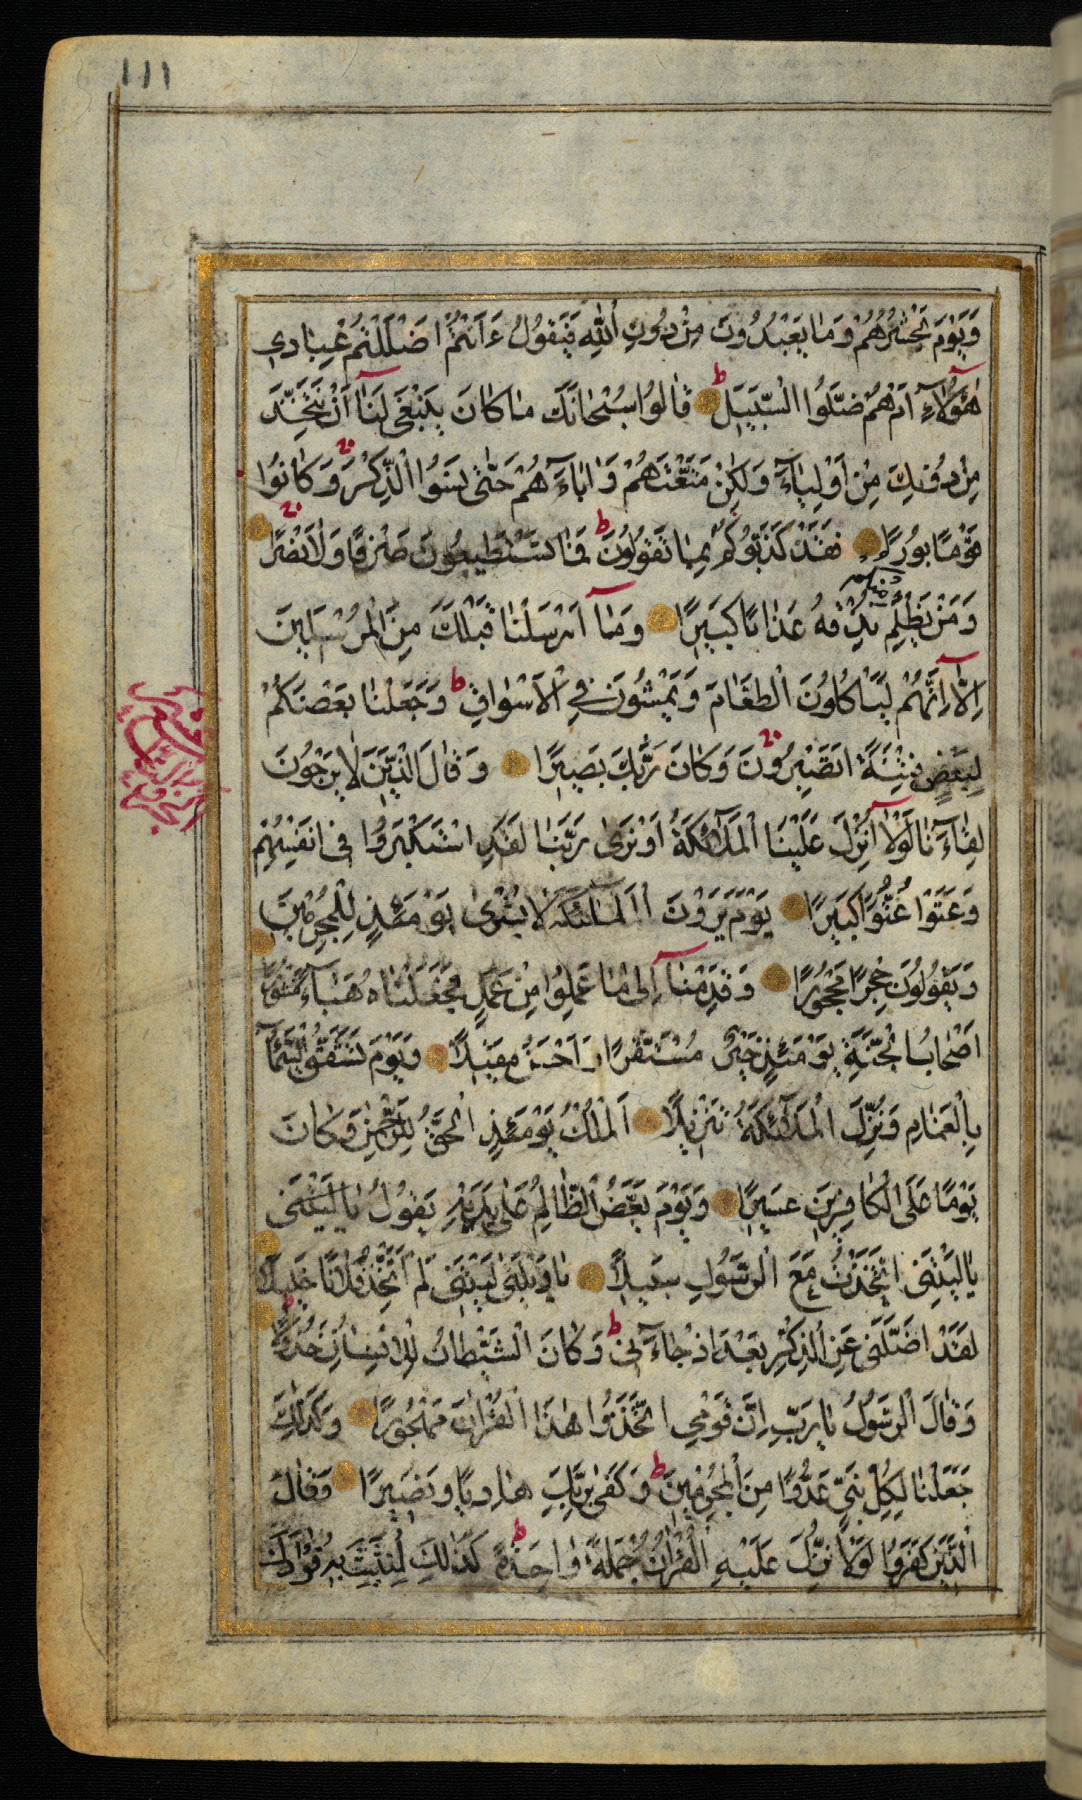 ١١١
وَيَوْمَ يَحْشُرُهُمْ وَمَا يَعْبُدُونَ مِنْ دُونِ اللهِ فَيَقُولُ ءَاَنْتُمْ اَضْلَلْتُمْ عِبَادِي
هٰٓؤُلَآءِ اَمْ هُمْ ضَلُّوا السَّبِيلَ ط قَالُوا سُبْحَانَكَ مَا كَانَ يَنْبَغِي لَنَآ اَنْ نَتَّخِذَ
مِنْ دُونِكَ مِنْ اَوْلِيَآءَ وَلٰكِنْ مَتَّعْتَهُمْ وَاٰبَآءَهُمْ حَتّٰى نَسُوا الذِّكْرَ وَكَانُوا
قَوْمًا بُورًا فَقَدْ كَذَّبُوكُمْ بِمَا تَقُولُونَ ط فَمَا تَسْتَطِيعُونَ صَرْفًا وَلَا نَصْرًا
وَمَنْ يَظْلِمْ مِنْكُمْ نُذِقْهُ عَذَابًا كَبِيرًا وَمَآ اَرْسَلْنَا قَبْلَكَ مِنَ الْمُرْسَلِينَ
اِلَّآ اِنَّهُمْ لَيَاْكُلُونَ الطَّعَامَ وَيَمْشُونَ فِي الْاَسْوَاقِ ط وَجَعَلْنَا بَعْضَكُمْ
لِبَعْضٍ فِتْنَةً اَتَصْبِرُونَ وَكَانَ رَبُّكَ بَصِيرًا وَقَالَ الَّذِينَ لَا يَرْجُونَ
لِقَآءَنَا لَوْلَآ اُنْزِلَ عَلَيْنَا الْمَلٰٓئِكَةُ اَوْ نَرٰى رَبَّنَا لَقَدِ اسْتَكْبَرُوا فِي اَنْفُسِهِمْ
وَعَتَوْا عُتُوًّا كَبِيرًا يَوْمَ يَرَوْنَ الْمَلٰٓئِكَةَ لَا بُشْرٰى يَوْمَئِذٍ لِلْمُجْرِمِينَ
وَيَقُولُونَ حِجْرًا مَحْجُورًا وَقَدِمْنَآ اِلٰى مَا عَمِلُوا مِنْ عَمَلٍ فَجَعَلْنَاهُ هَبَآءً مَنْثُورًا
اَصْحَابُ الْجَنَّةِ يَوْمَئِذٍ خَيْرٌ مُسْتَقَرًّا وَاَحْسَنُ مَقِيلًا وَيَوْمَ تَشَقَّقُ السَّمَآءُ
بِالْغَمَامِ وَنُزِّلَ الْمَلٰٓئِكَةُ تَنْزِيلًا اَلْمُلْكُ يَوْمَئِذٍ الْحَقُّ لِلرَّحْمٰنِ وَكَانَ
يَوْمًا عَلَى الْكَافِرِينَ عَسِيرًا وَيَوْمَ يَعَضُّ الظَّالِمُ عَلٰى يَدَيْهِ يَقُولُ يَا لَيْتَنِي
يَا لَيْتَنِي اتَّخَذْتُ مَعَ الرَّسُولِ سَبِيلًا يَا وَيْلَتٰى لَيْتَنِي لَمْ اَتَّخِذْ فُلَانًا خَلِيلًا
لَقَدْ اَضَلَّنِي عَنِ الذِّكْرِ بَعْدَ اِذْ جَآءَنِي ط وَكَانَ الشَّيْطَانُ لِلْاِنْسَانِ خَذُولًا
وَقَالَ الرَّسُولُ يَا رَبِّ اِنَّ قَوْمِي اتَّخَذُوا هٰذَا الْقُرْاٰنَ مَهْجُورًا وَكَذٰلِكَ
جَعَلْنَا لِكُلِّ نَبِيٍّ عَدُوًّا مِنَ الْمُجْرِمِينَ ط وَكَفٰى بِرَبِّكَ هَادِيًا وَنَصِيرًا وَقَالَ
الَّذِينَ كَفَرُوا لَوْلَا نُزِّلَ عَلَيْهِ الْقُرْاٰنُ جُمْلَةً وَاحِدَةً ط كَذٰلِكَ لِنُثَبِّتَ بِهِ فُؤَادَكَ